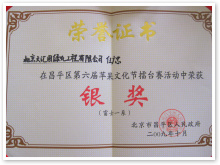 荣誉证书
北京天汇园绿化工程有限公司
在昌平区第六届苹果文化节擂台赛活动中荣获
银奖
（富士一系）
北京市昌平区人民政府
二00九年十月